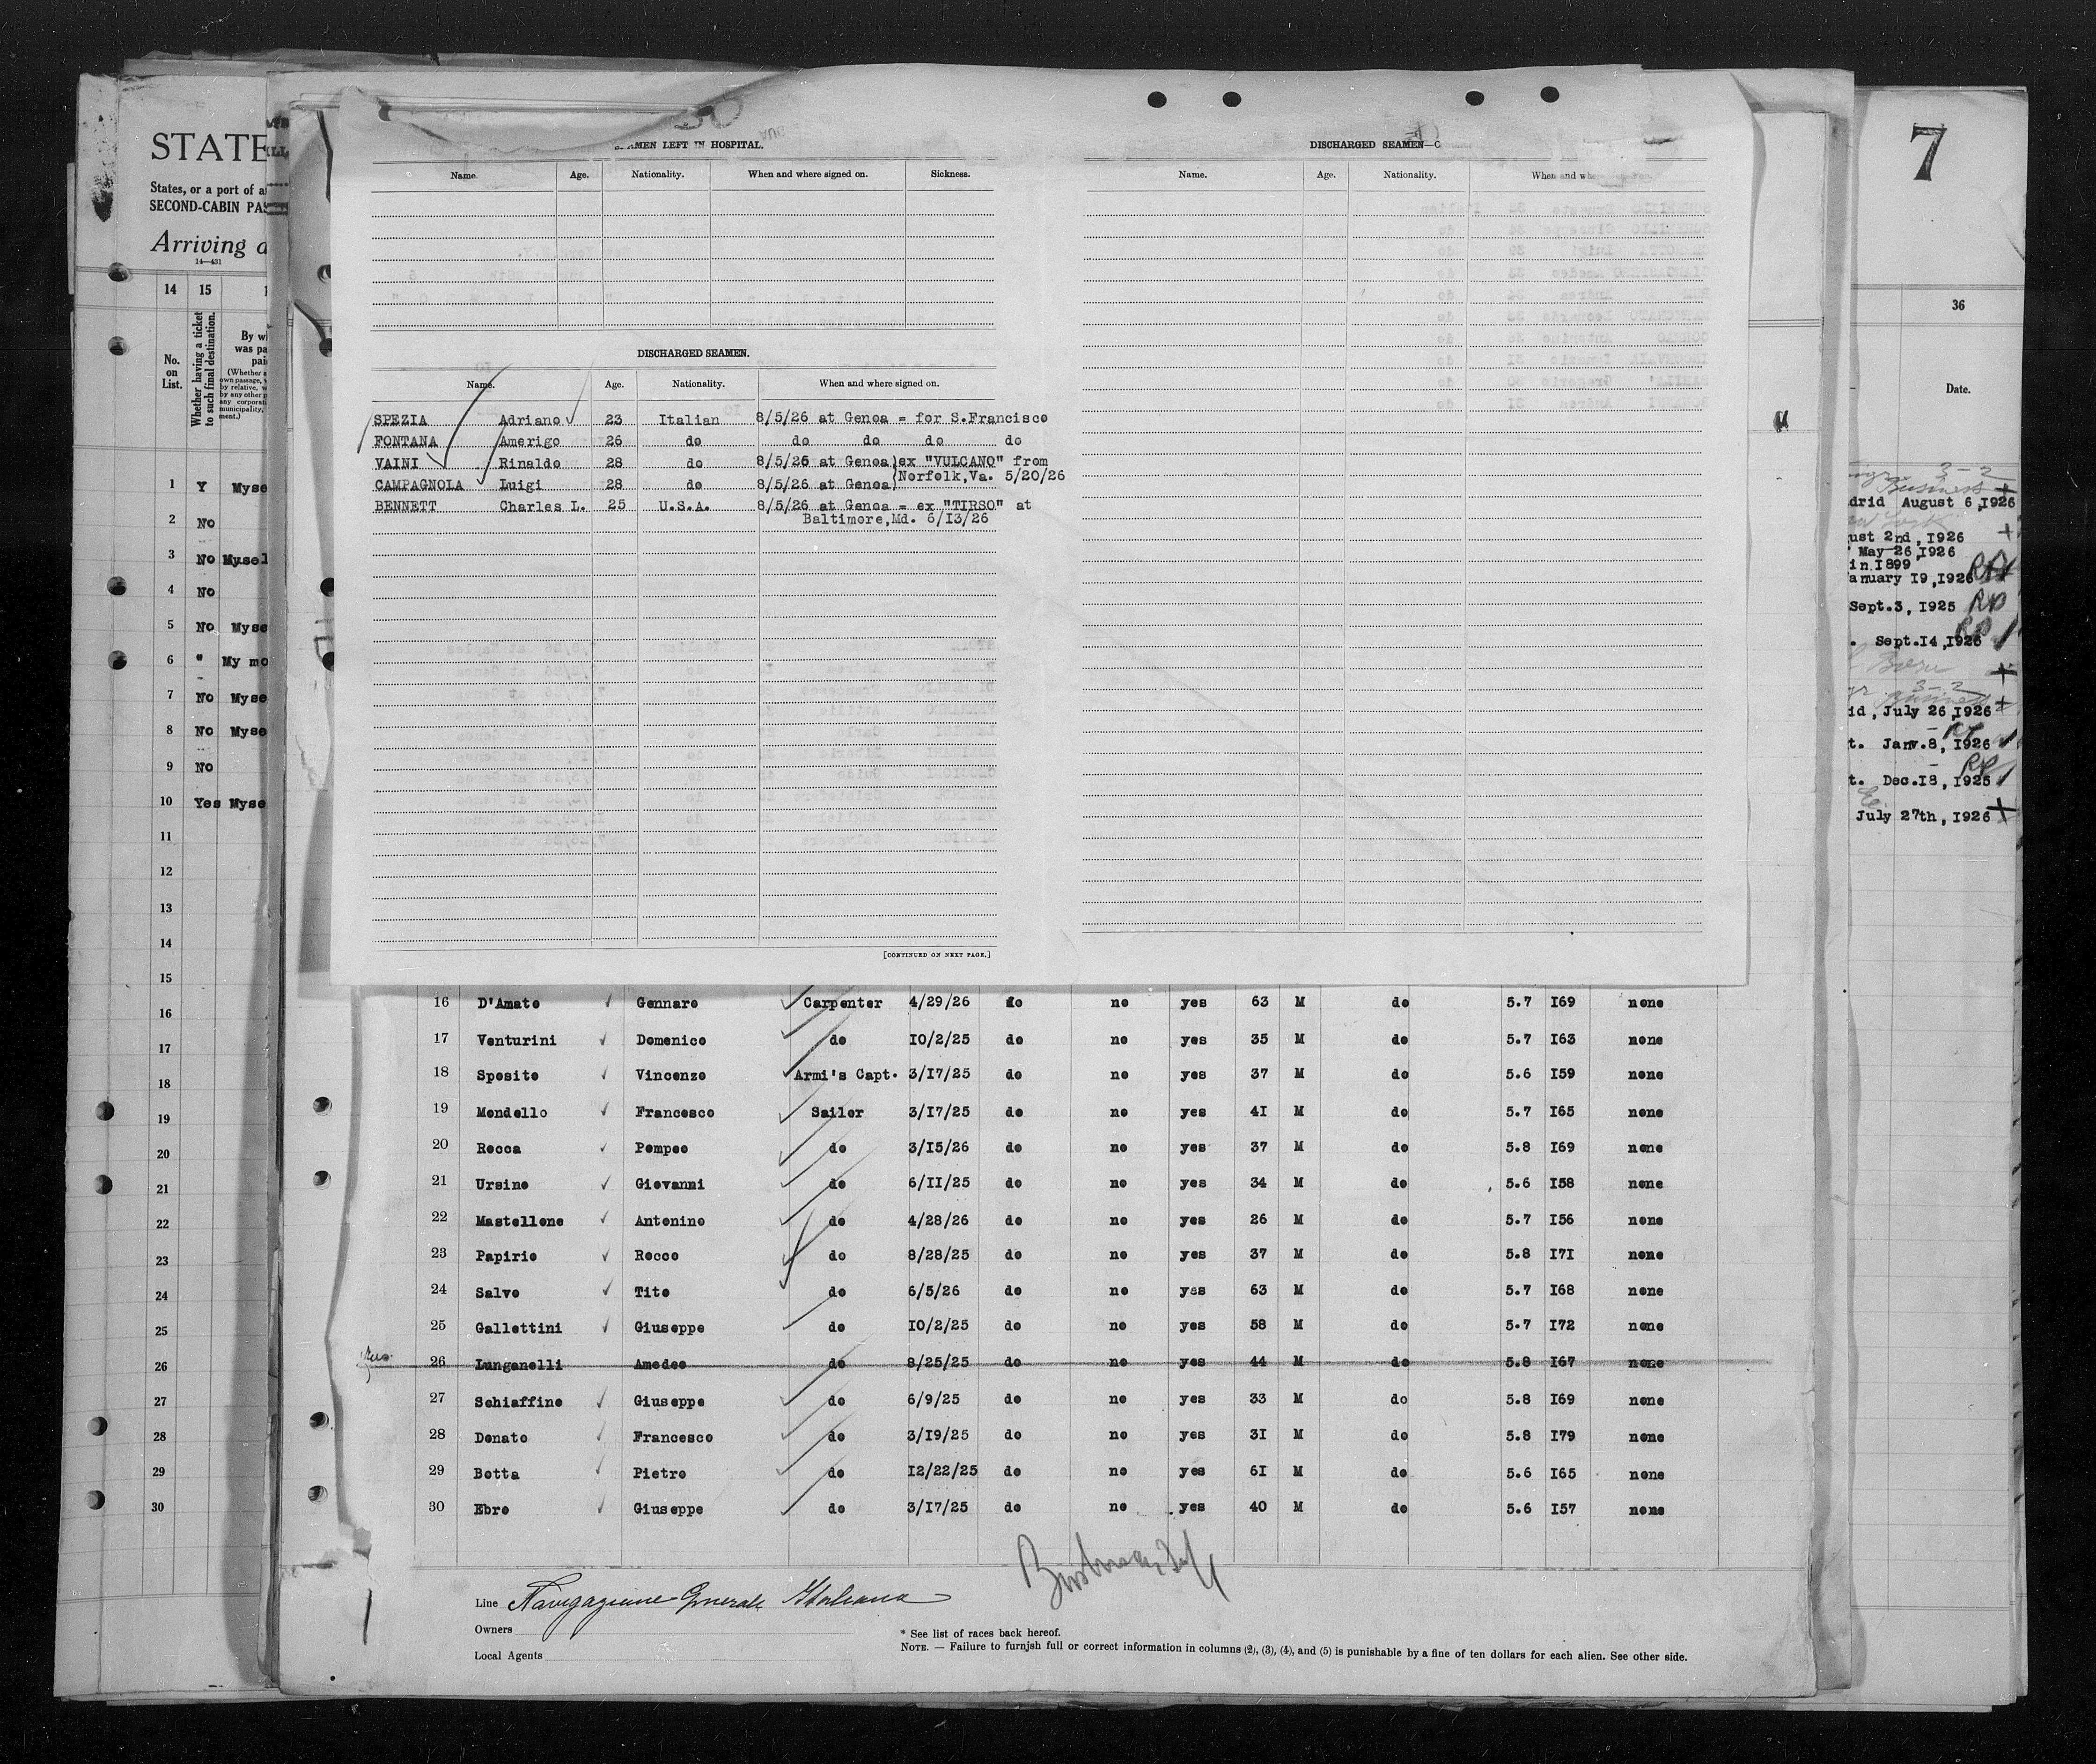 STATE
States, or a port of a
SECOND-CABIN PAS
Arriving a
14—431
14 15
No. on List.
Whether having a ticket to such final destination.
By w
was pa
pai
(Whether a
own passage, w
by relative, w
by any other p
any corporat
municipality,
ment.)
1 Y Myse
2 No
3 No Musel
4 No
5 No Myse
6 " My mo
7 No Myse
8 No Myse
9 No
10 Yes Myse
11
12
13
14
15
16
17
18
19
20
21
22
23
24
25
26
27
28
29
30
MEN LEFT IN HOSPITAL.
Name. Age. Nationality. When and where signed on. Sickness.
DISCHARGED SEAMEN.
Name. Age. Nationality. When and where signed on.
SPEZIA Adriano 23 Italian 8/5/26 at Genoa = for S.Francisco
FONTANA Amerigo 26 do do do do do
VAINI Rinaldo 28 do 8/5/26 at Genoa)ex "VULCANO" from
CAMPAGNOLA Luigi 28 do 8/5/26 at Genoa(Norfolk,Va. 5/20/26
BENNETT Charles L. 25 U.S.A. 8/5/26 at Genoa = ex "TIRSO" at
Baltimore,Md. 6/13/26
[CONTINUED ON NEXT PAGE.]
DISCHARGED SEAMEN—C
Name. Age. Nationality. When and wh
16 D'Amato Gennaro Carpenter 4/29/26 do no yes 63 M do 5.7 I69 none
17 Venturini Domenico do IO/2/25 do no yes 35 M do 5.7 I63 none
18 Sposito Vincenzo Armi's Capt. 3/I7/25 do no yes 37 M do 5.6 I59 none
19 Mondello Francesco Sailor 3/I7/25 do no yes 4I M do 5.7 I65 none
20 Rocca Pompeo do 3/I5/26 do no yes 37 M do 5.8 I69 none
21 Ursino Giovanni do 6/II/25 do no yes 34 M do 5.6 I58 none
22 Mastellone Antonino do 4/28/26 do no yes 26 M do 5.7 I56 none
23 Papirio Rocco do 8/28/25 do no yes 37 M do 5.8 I7I none
24 Salvo Tito do 6/5/26 do no yes 63 M do 5.7 I68 none
25 Gallettini Giuseppe do IO/2/25 do no yes 58 M do 5.7 I72 none
26 Lunganelli Amedeo do 8/25/25 do no yes 44 M do 5.8 I67 none
27 Schiaffino Giuseppe do 6/9/25 do no yes 33 M do 5.8 I69 none
28 Donato Francesco do 3/I9/25 do no yes 3I M do 5.8 I79 none
29 Botta Pietro do I2/22/25 do no yes 6I M do 5.6 I65 none
30 Ebro Giuseppe do 3/I7/25 do no yes 40 M do 5.6 I57 none
Line Navigazione Generale Italiana
Owners
Local Agents
* See list of races back hereof.
NOTE. — Failure to furnish full or correct information in columns (2), (3), (4), and (5) is punishable by a fine of ten dollars for each alien. See other side.
7
36
Date.
3-2
Business +
drid August 6,I926
ust 2nd,I926 +
May 26,I926
in I899
anuary I9,I926
Sept.3, I925
. Sept.I4,I926
Born +
3-2
id, July 26,I926 +
t. Janv.8, I926
t. Dec.I8, I925
July 27th, I926 +